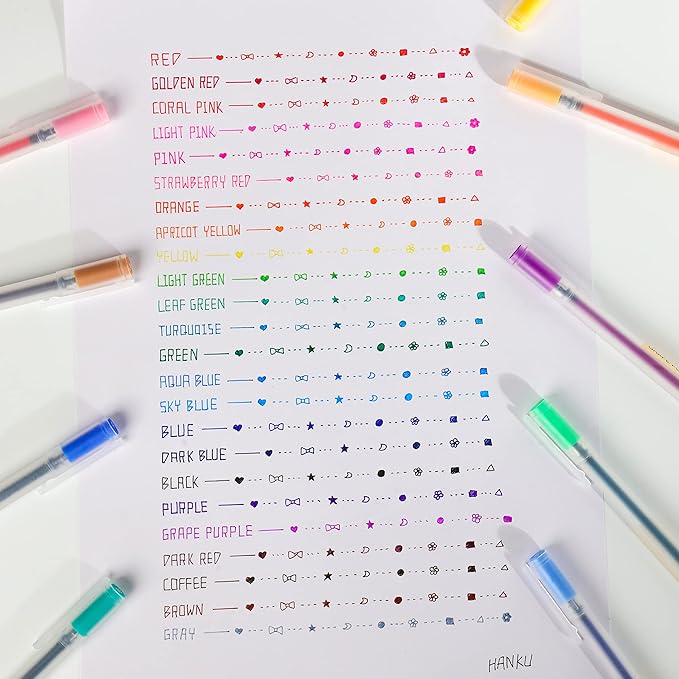 RED
GOLDEN RED
CORAL PINK
LIGHT PINK
PINK
STRAWBERRY RED
ORANGE
APRICOT YELLOW
YELLOW
LIGHT GREEN
LEAF GREEN
TURQUOISE
GREEN
AQUA BLUE
SKY BLUE
BLUE
DARK BLUE
BLACK
PURPLE
GRAPE PURPLE
DARK RED
COFFEE
BROWN
GRAY
HANKU